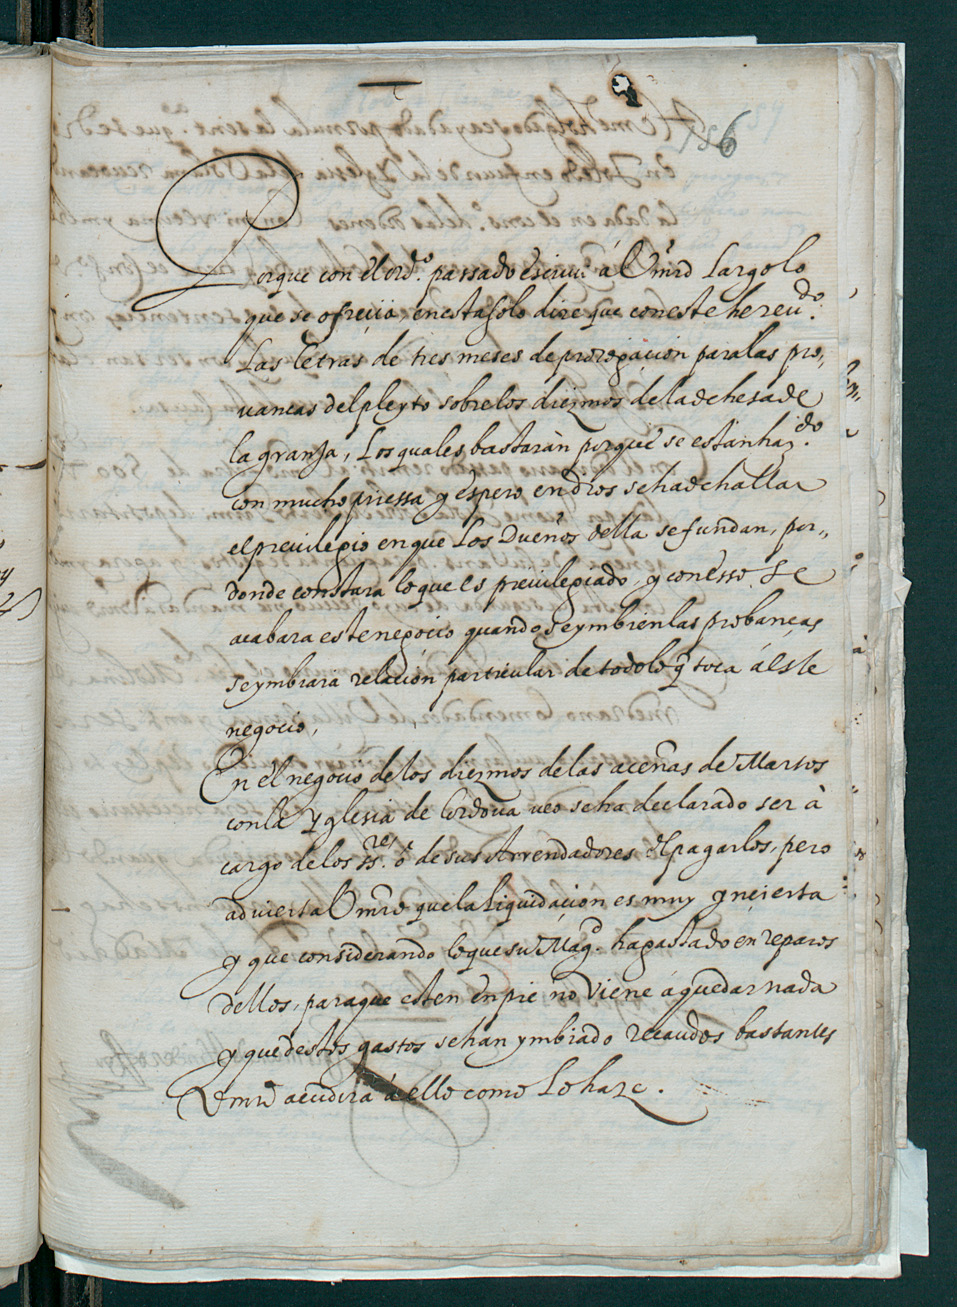 156
Porque con el ordº. passado escrivi á Vmrd Largo lo
que se ofrecia, en esta solo dire que con este he reciuᵈᵒ.
Las letras de tres meses de prorogacion para las pro,,
uancas del pleyto sobre los diezmos de la dehesa de
la granja, Los quales bastaràn porque se estan hazᵈᵒ.
con mucho priessa y espero en Dios se ha de hallar
el preuilegio en que Los Dueños della se fundan, por,,
donde constara lo que es preuilegiado, y con esso se
acabara este negocio quando se ymbien las probancas
se ymbiara relacion particular de todo lo q̃ toca á este
negocio,
En el negocio de los diezmos de las aceñas de Martos
con la Yglesia de Cordoua veo se ha declarado ser à
cargo de los ssʳᵉˢ. ó de sus Arrendadores el pagarlos, pero
advierta Vmrd que la liquidacion es muy yncierta
y que considerando lo que su Magᵈ. ha gastado en reparos
dellos, para que esten en pie no viene á quedar nada
y que destos gastos se han ymbiado recaudos bastantes
Vmrd acudirá á ello como Lo haze.